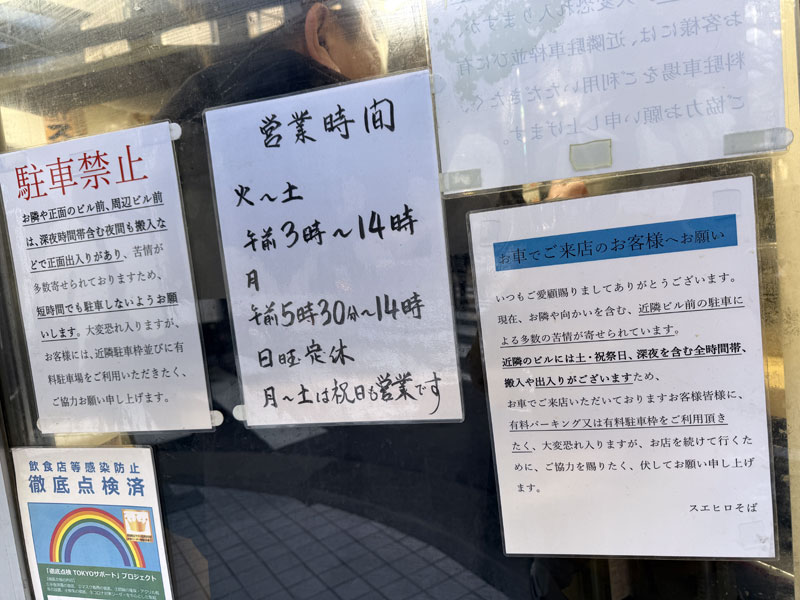 駐車禁止
お隣や正面のビル前、周辺ビル前
は、深夜時間帯含む夜間も搬入な
どで正面出入りがあり、苦情が
多数寄せられておりますため、
短時間でも駐車しないようお願
いします。大変恐れ入りますが、
お客様には、近隣駐車枠並びに有
料駐車場をご利用いただきたく、
ご協力お願い申し上げます。
営業時間
火～土
午前3時～14時
月
午前5時30分～14時
日曜定休
月～土は祝日も営業です
大変恐れ入りますが、
お客様には、近隣駐車枠並びに有
料駐車場をご利用いただきたく、
ご協力お願い申し上げます。
お車でご来店のお客様へお願い
いつもご愛顧賜りましてありがとうございます。
現在、お隣や向かいを含む、近隣ビル前の駐車に
よる多数の苦情が寄せられています。
近隣のビルには土・祝祭日、深夜を含む全時間帯、
搬入や出入りがございますため、
お車でご来店いただいておりますお客様皆様に、
有料パーキング又は有料駐車枠をご利用頂き
たく、大変恐れ入りますが、お店を続けて行くた
めに、ご協力を賜りたく、伏してお願い申し上げ
ます。
スエヒロそば
飲食店等感染防止
徹底点検済
「徹底点検 TOKYOサポート」プロジェクト